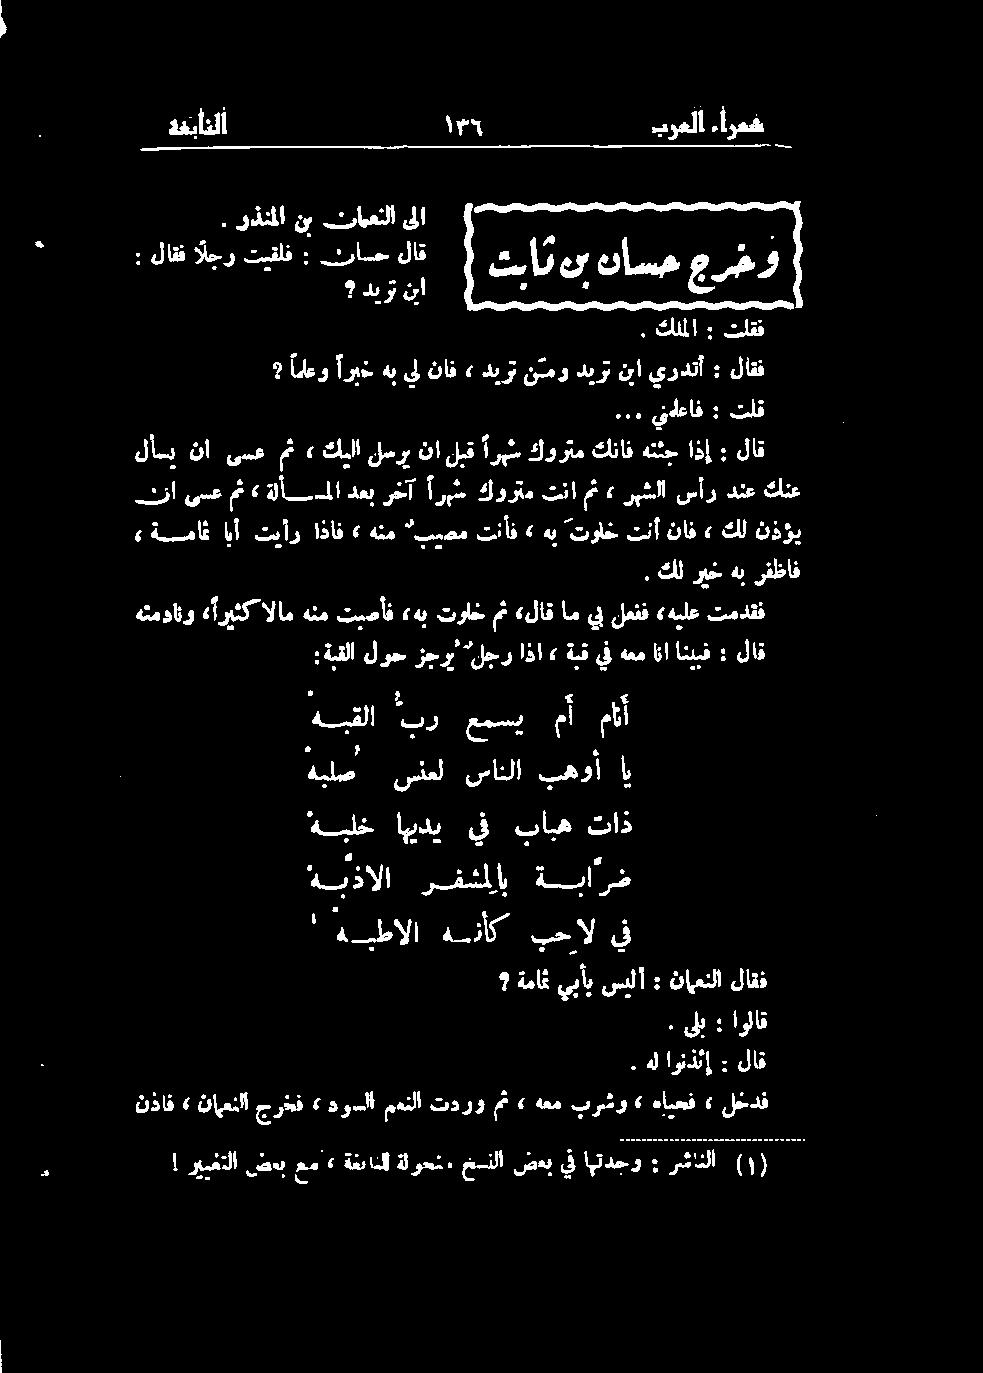 شعراء العرب ١٣٦ النابغة
وخرج حسان بن ثابت
الى النعمان بن المنذر .
قال حسان : فلقيت رجلاً فقال :
اين تريد ؟
فقلت : الملك .
فقال : أتدري اين تريد ومَن تريد ، فان لي به خبراً وعلماً ؟
قلت : فاعلمني ...
قال : إذا جئته فانك متروك شهراً قبل ان يرسل اليك ، ثم عسى ان يسأل
عنك عند رأس الشهر ، ثم انت متروك شهراً آخر بعد المسألة ، ثم عسى ان
يؤذن لك ، فان أنت خلوتَ به ، فأنت مصيبٌ منه ، فاذا رأيت أبا ثمامة ،
فاظفر به خير لك .
فقدمت عليه، ففعل بي ما قال، ثم خلوت به، فأصبت منه مالاً كثيراً، ونادمته
قال : فبينا انا معه في قبة ، اذا رجلٌ يُرجز حول القبة:
أنام أم يسمع ربُّ القبهْ
يا أوهب الناس لعنس صُلبهْ
ذات هباب في يديها خلبهْ
ضرّابة بالمِشفر الاذبّهْ
في لاحِب كأنه الاطبّهْ ١
فقال النعمان : أليس بأبي ثمامة ؟
قالوا : بلى .
قال : إئذنوا له .
فدخل ، فحياه ، وشرب معه ، ثم وردت النعم السود ، فخرج النعمان ، فاذن
(١) الناشر : وجدتها في بعض النسخ منحولة للنابغة ، مع بعض التغيير !